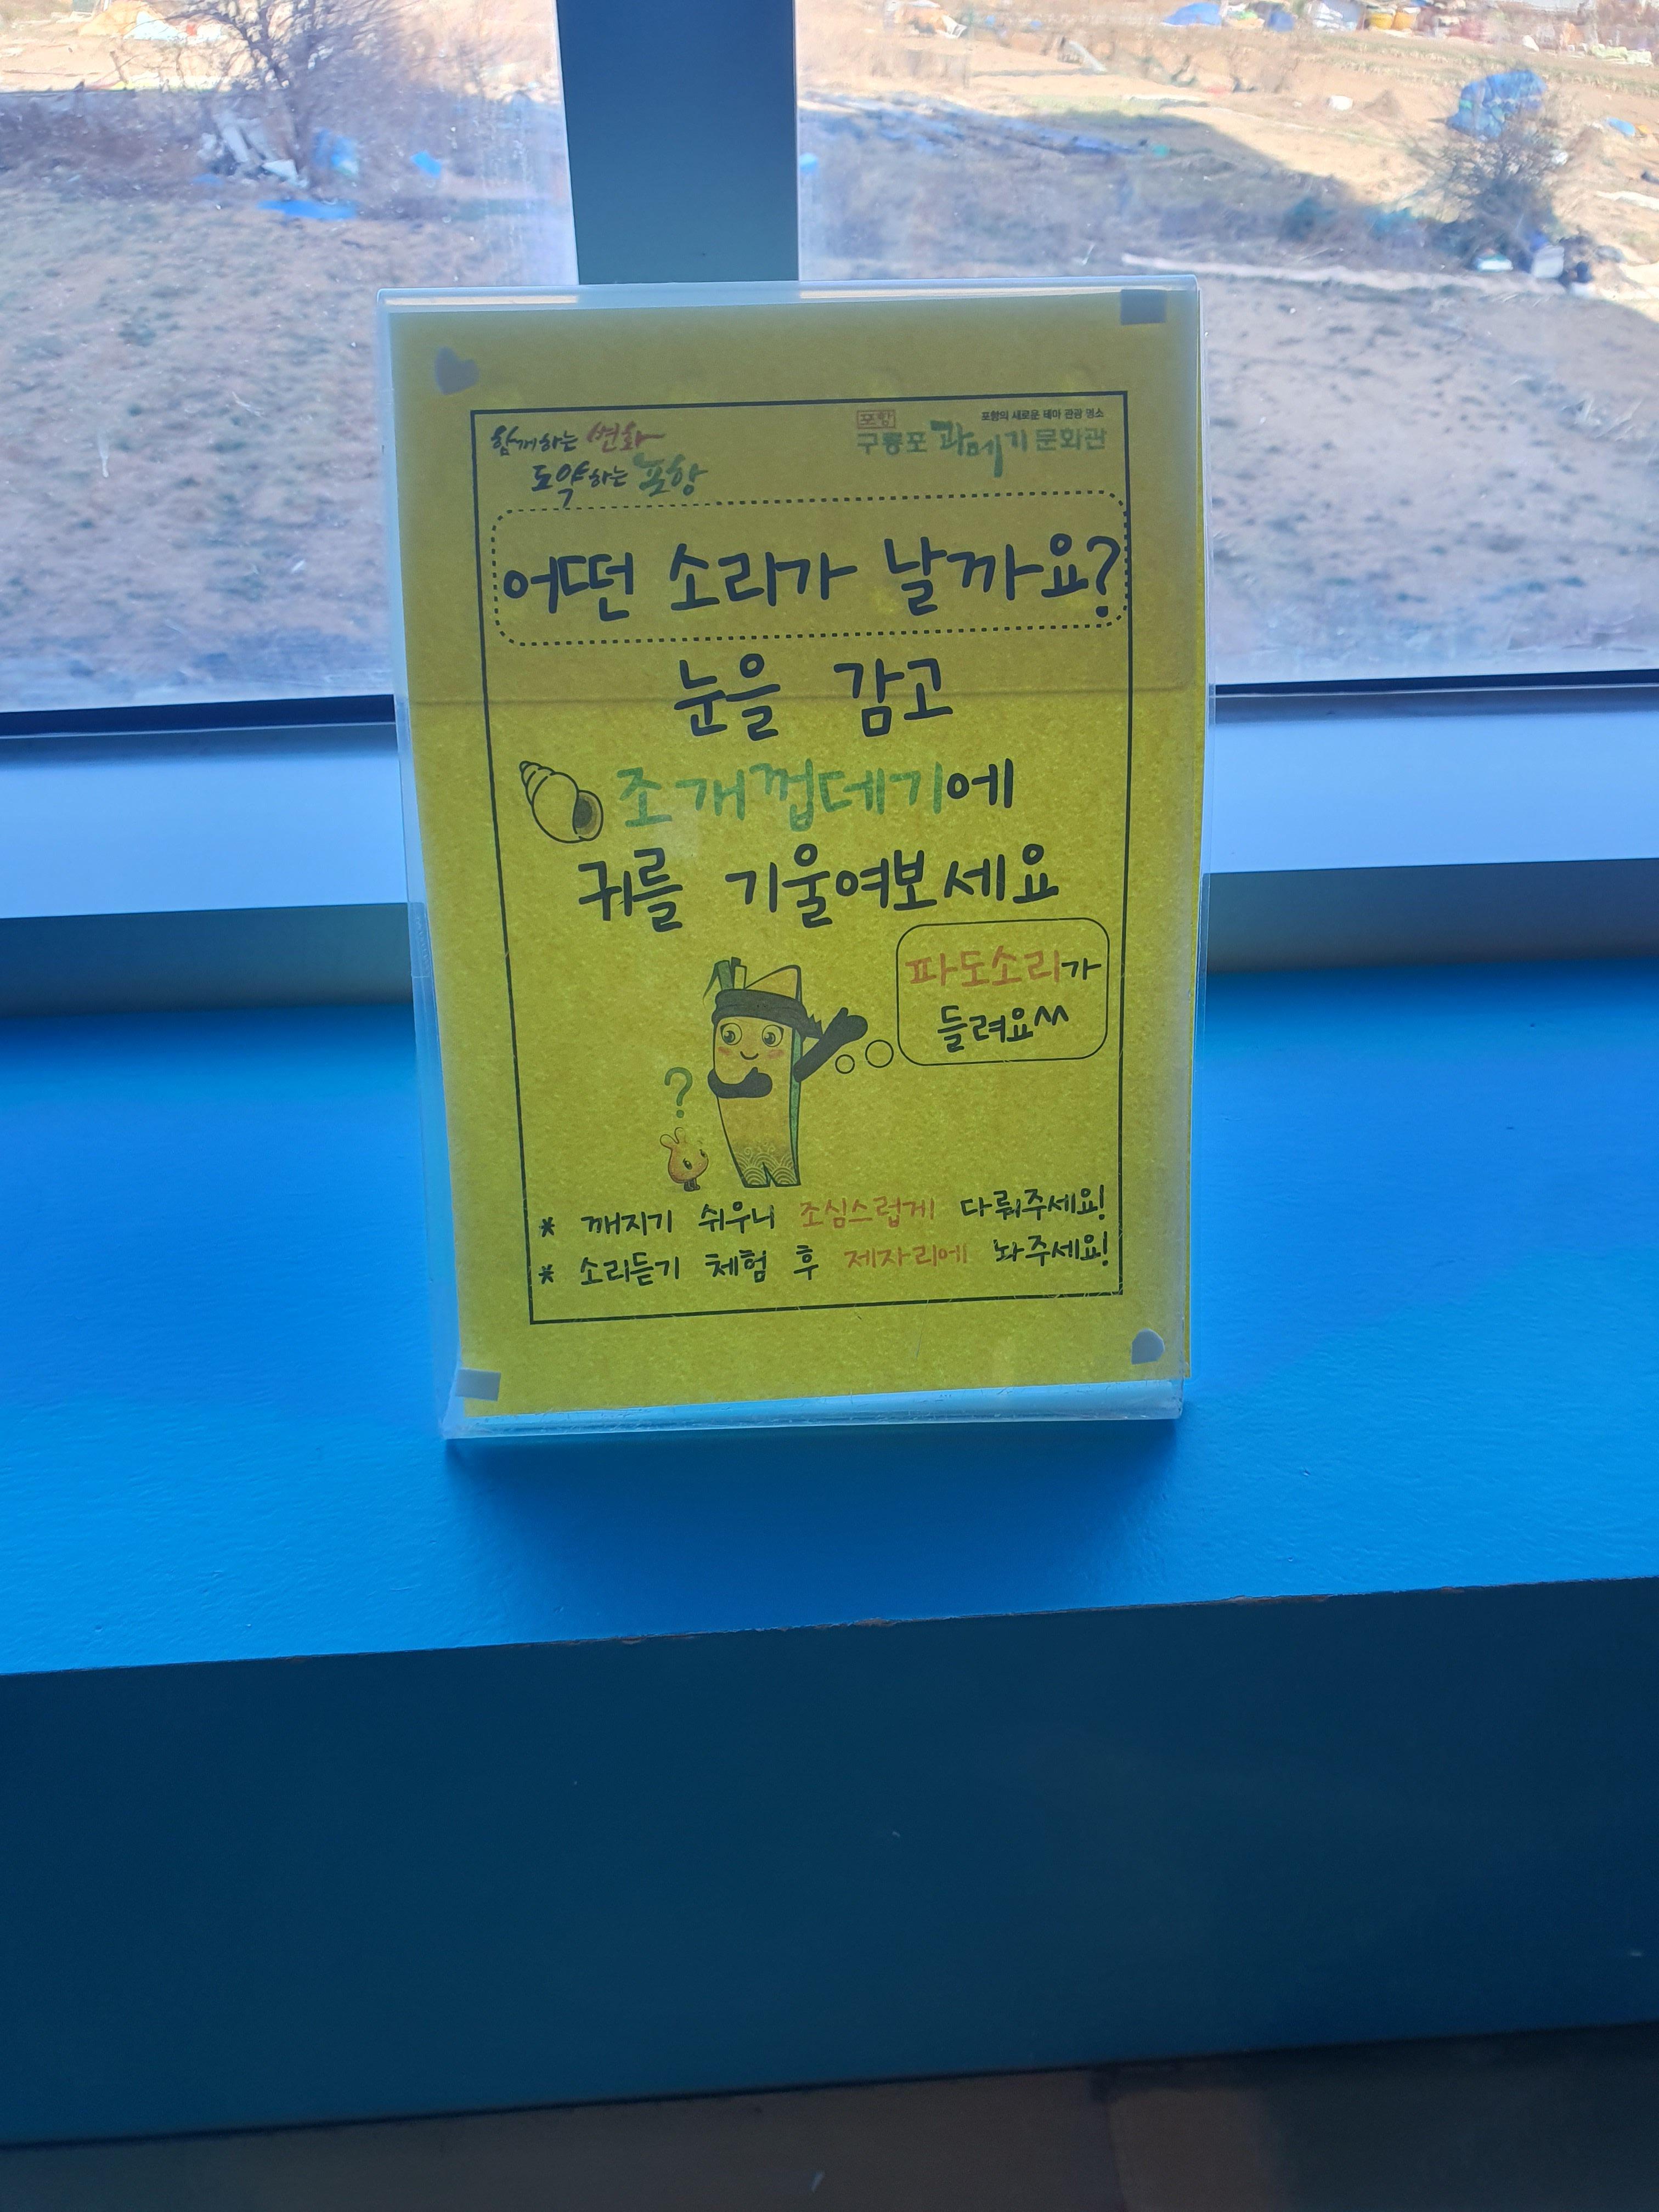 함께하는 변화
도약하는 포항
포항의 새로운 테마 관광 명소
포항
구룡포 과메기 문화관
어떤 소리가 날까요?
눈을 감고
조개껍데기에
귀를 기울여보세요
파도소리가
들려요^^
?
* 깨지기 쉬우니 조심스럽게 다뤄주세요!
* 소리듣기 체험 후 제자리에 놔주세요!